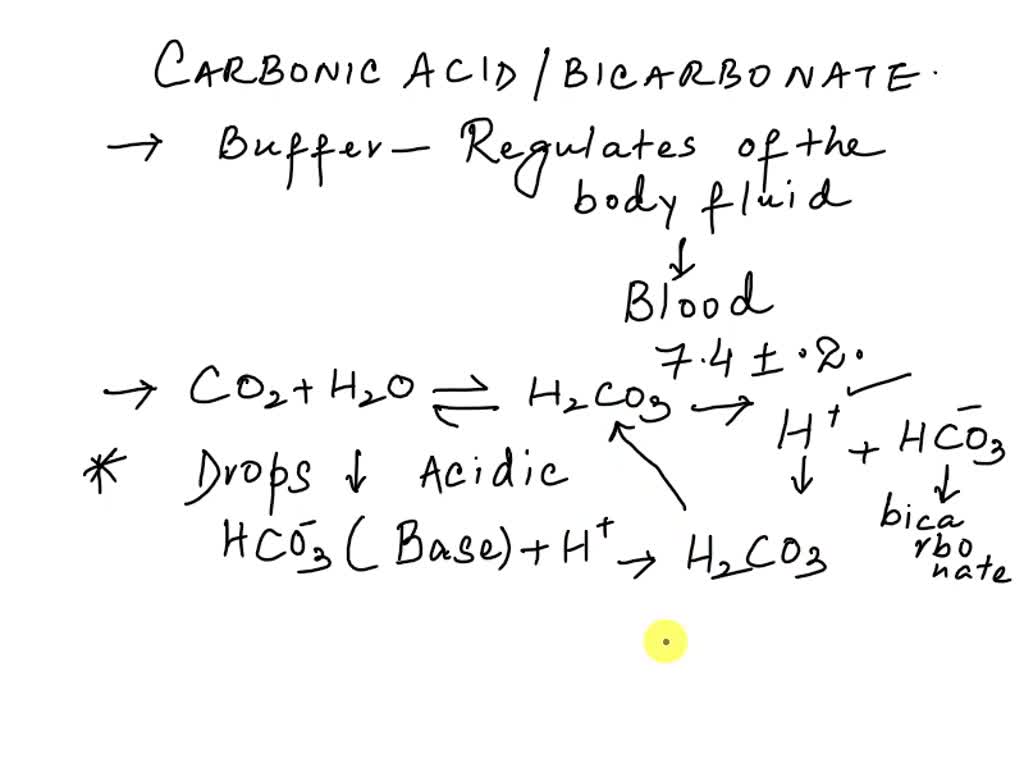 CARBONIC ACID/BICARBONATE.
→ Buffer — Regulates of the
body fluid
↓
Blood
7.4 ± .2.
→ CO₂ + H₂O ⇌ H₂CO₃ → H⁺ + HCO₃⁻
↓ ↓
bica
rbo
nate
* Drops ↓ Acidic
HCO₃⁻ (Base) + H⁺ → H₂CO₃